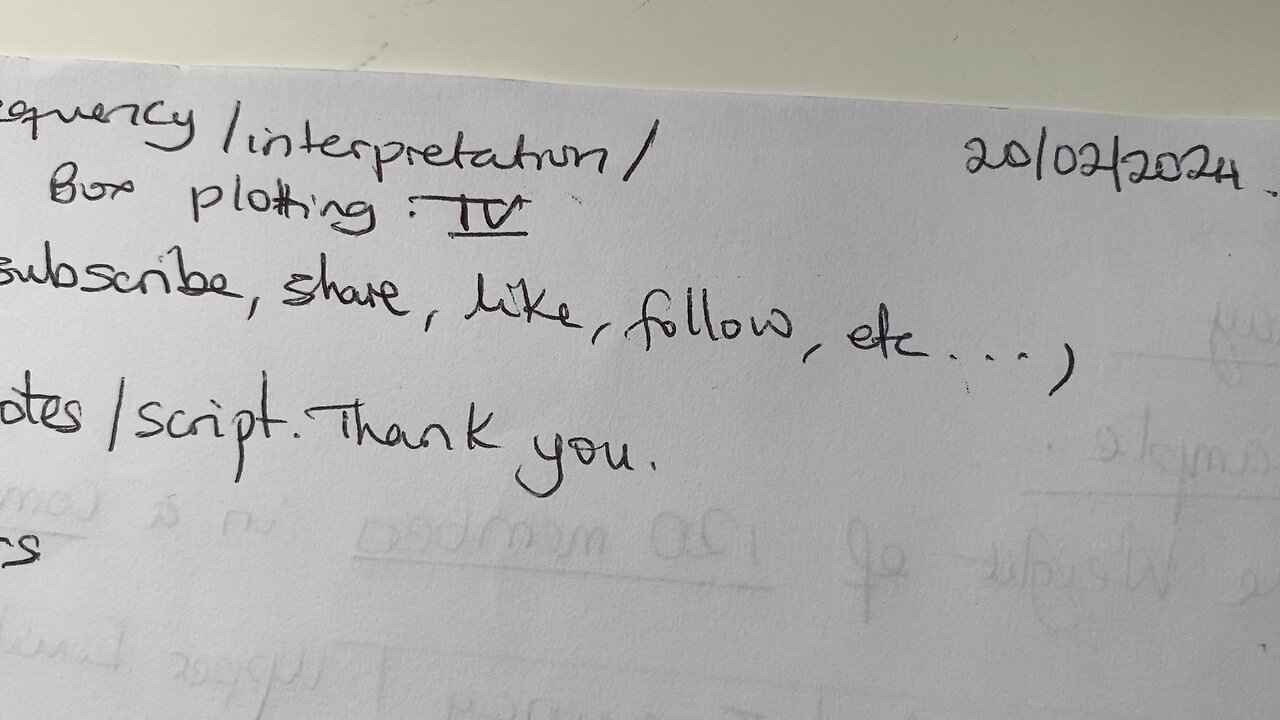 equency / interpretation / 20/02/2024.
Box plotting: IV
subscribe, share, like, follow, etc....,
otes / script. Thank you.
rs